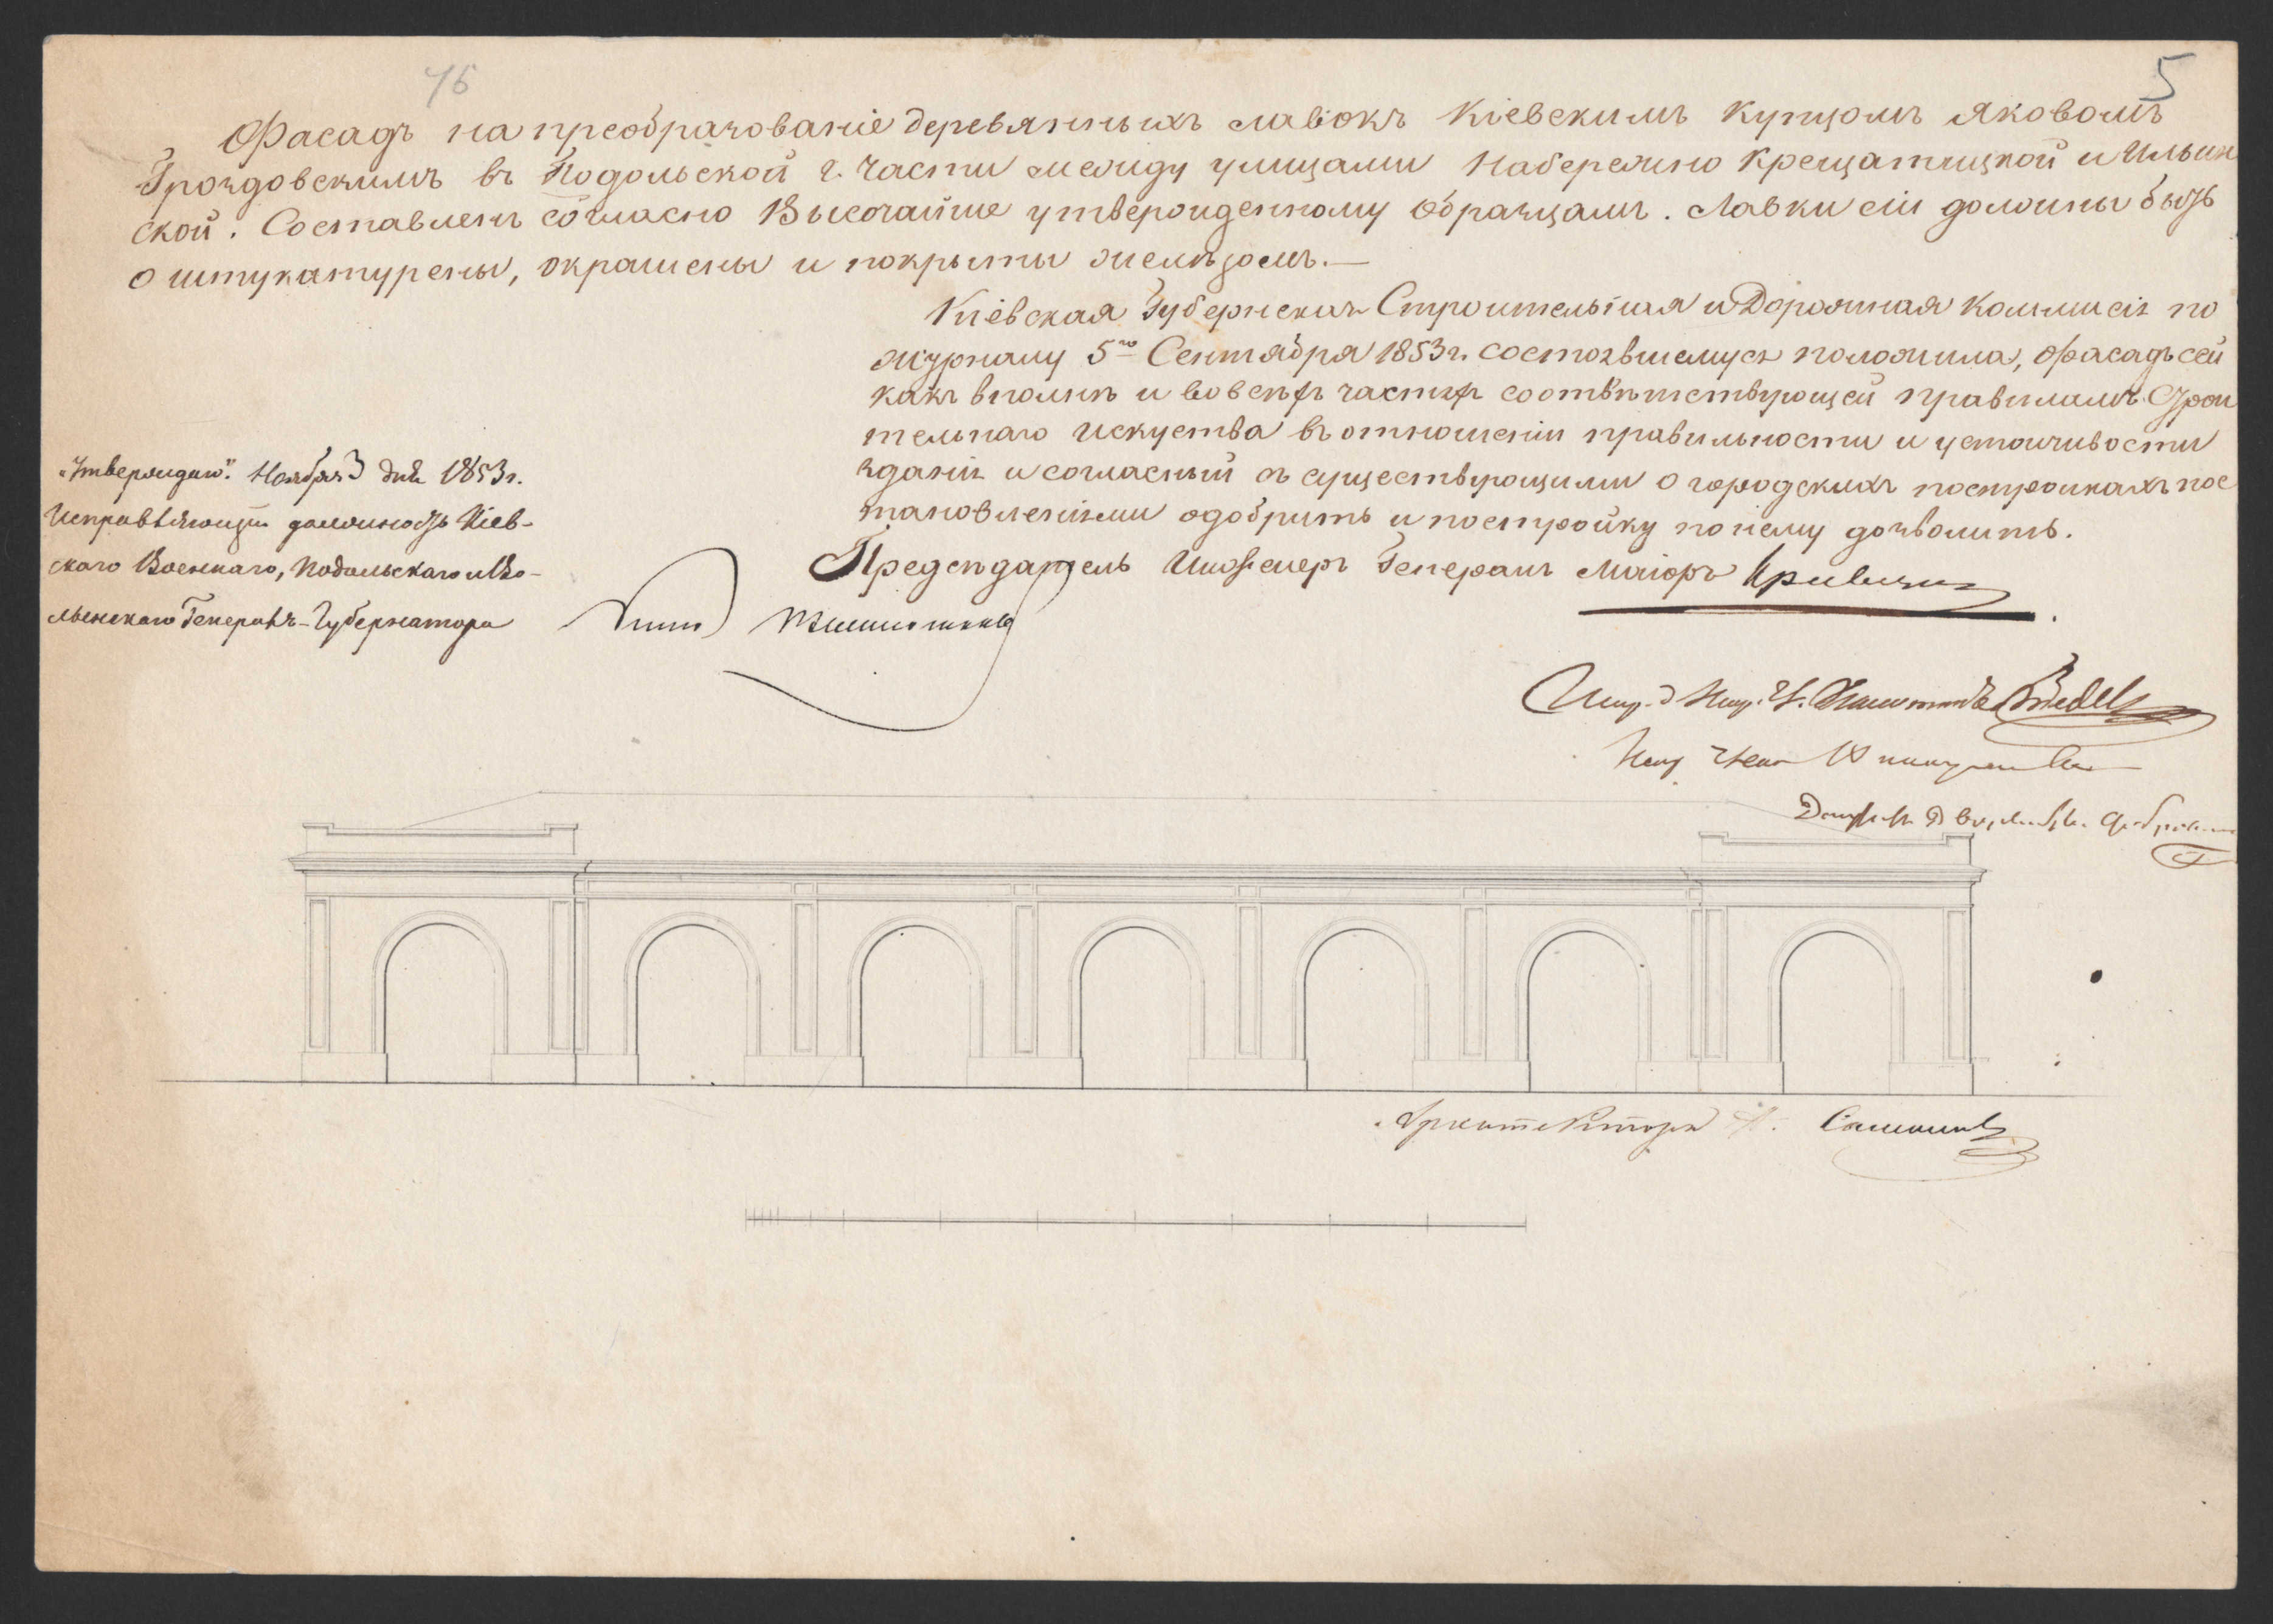 76
5
Фасадъ на преобразованіе деревянныхъ лавокъ Кіевскимъ Купцомъ Яковомъ
Гроздовскимъ въ Подольской г. Части между улицами Набережно Крещатицкой и Ильин
ской. Составленъ согласно Высочайше утвержденному образцамъ. Лавки сіи должны быть
оштукатурены, окрашены и покрыты желѣзомъ.—
Кіевская Губернская Строительная и Дорожная Коммисія по
журналу 5го Сентября 1853 г. состоявшемуся положила, фасадъ сей
какъ вполнѣ и во всѣхъ частяхъ соотвѣтствующей правиламъ Строи
тельнаго искуства въ отношеніи правильности и устоичивости
зданія и согласный съ существующими о городскихъ постройкахъ пос
тановленіями одобрить и постройку по нему дозволить.
Предсѣдатель Инженеръ Генералъ Маіоръ
„Утверждаю". Ноября 3 дня 1853 г.
Исправляющій должность Кіев-
скаго Военнаго, Подольскаго и Во-
лынскаго Генералъ-Губернатора
Архитекторъ